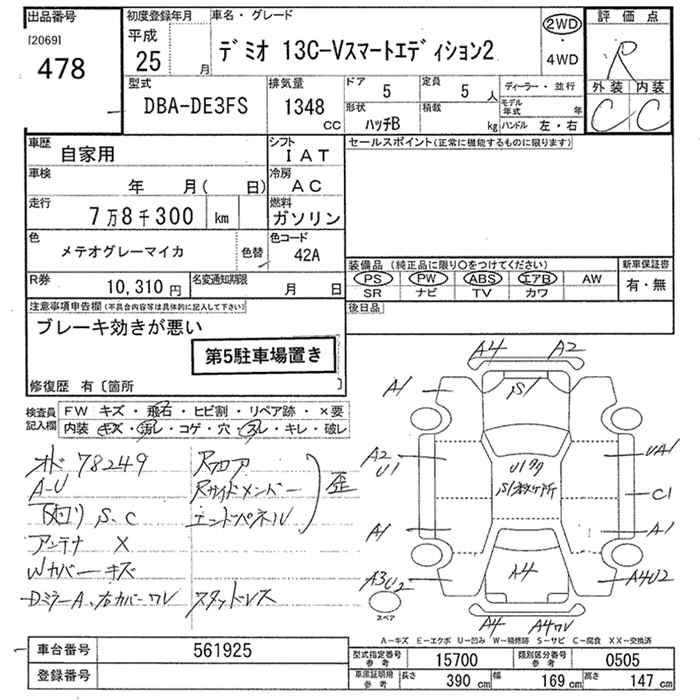 出品番号
[2069]
478
初度登録年月
平成
25 月
車名・グレード
デミオ 13C-Vスマートエディション2
2WD
・
4WD
評価点
R
外装 内装
C C
型式
DBA-DE3FS
排気量
1348
CC
ドア
5
定員
5 人
形状
ハッチB
積載
kg
ディーラー・並行
モデル年式 年
ハンドル 左・右
車歴
自家用
シフト
IAT
車検
年 月( 日)
冷房
AC
走行
7万8千300 km
燃料
ガソリン
色
メテオグレーマイカ
色替
色コード
42A
R券
10,310 円
名変通知期限
月 日
セールスポイント(正常に機能するものに限ります)
装備品 (純正品に限り○をつけてください)
新車保証書
PS PW ABS エアB AW
有・無
SR ナビ TV カワ
後日品
注意事項申告欄(不具合内容等は具体的に記入して下さい)
ブレーキ効きが悪い
第5駐車場置き
修復歴 有〔箇所 〕
検査員
記入欄
FW キズ・飛石・ヒビ割・リペア跡・×要
内装・キズ・汚レ・コゲ・穴・スレ・キレ・破レ
オド 78249
A-U
下廻リ S.C
アンテナ X
Wカバーキズ
DミラーA、右カバーワレ
Rフロア
Rサイドメンバー
エンドパネル
歪
スタッドレス
A4 A2
A1
S1
A2
U1
U1
S1
UA1
C1
A1
A1
A3U2
A4
A4U2
A4
A4ワレ
スペア
A-キズ E-エクボ U-凹み W-補修跡 S-サビ C-腐食 XX-交換済
車台番号
561925
登録番号
型式指定番号
参考
15700
類別区分番号
参考
0505
車庫証明用
参考
長さ
390 cm
幅
169 cm
高さ
147 cm